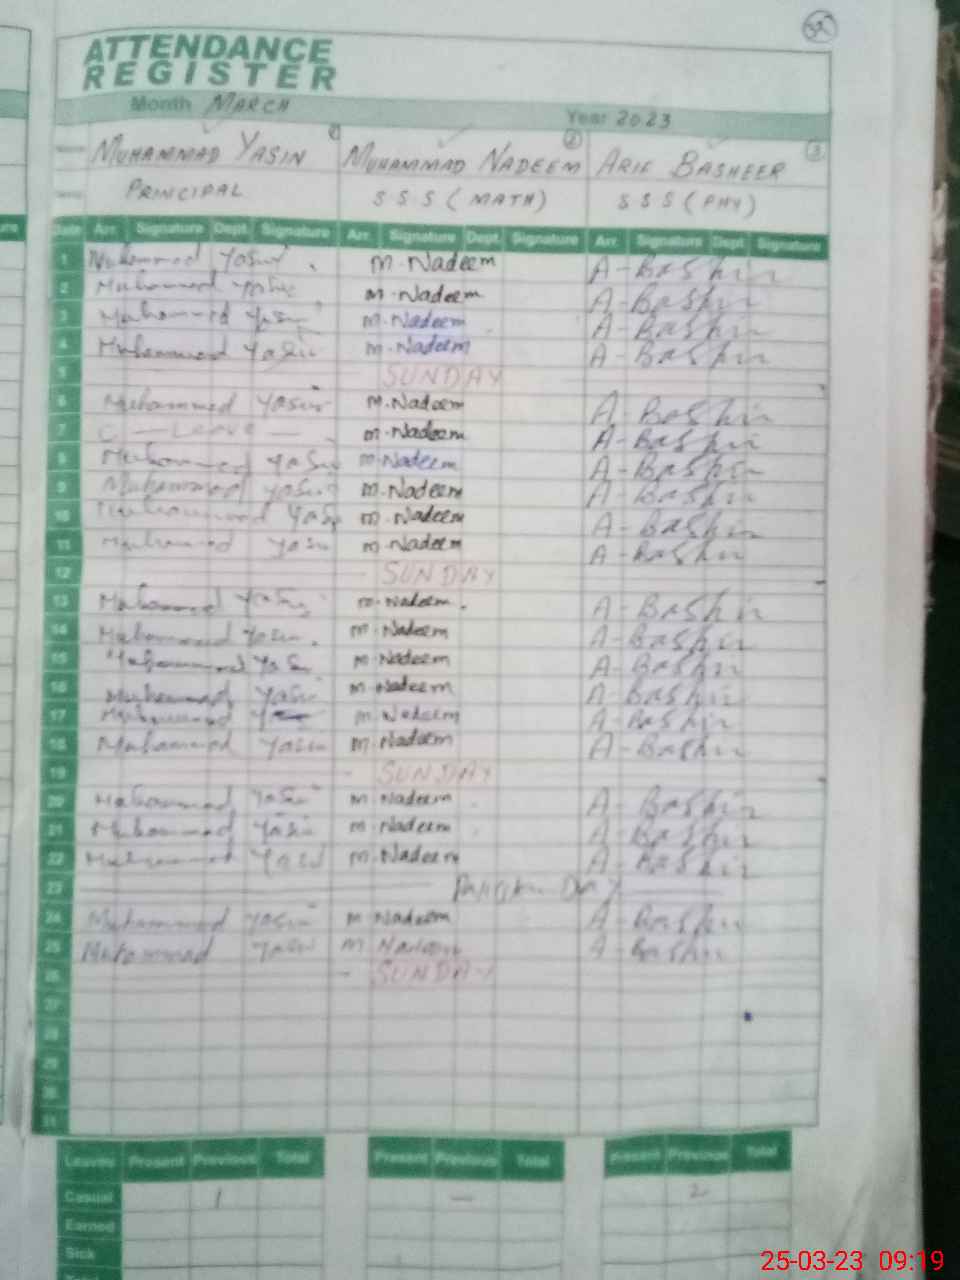 35
ATTENDANCE
REGISTER
Month MARCH Year 2023
1 2 3
MUHAMMAD YASIN MUHAMMAD NADEEM ARIF BASHEER
PRINCIPAL S S S (MATH) S S S (PHY)
Date Arr. Signature Dept. Signature Arr. Signature Dept. Signature Arr. Signature Dept. Signature
1 Muhammad Yasin M.Nadeem A-Bashir
2 Muhammad Yasin M.Nadeem A-Bashir
3 Muhammad Yasin M.Nadeem A-Bashir
4 Muhammad Yasin M.Nadeem A-Bashir
5 SUNDAY
6 Muhammad Yasin M.Nadeem A-Bashir
7 C - Leave - M.Nadeem A-Bashir
8 Muhammad Yasin M.Nadeem A-Bashir
9 Muhammad Yasin M.Nadeem A-Bashir
10 Muhammad Yasin M.Nadeem A-Bashir
11 Muhammad Yasin M.Nadeem A-Bashir
12 SUNDAY
13 Muhammad Yasin M.Nadeem A-Bashir
14 Muhammad Yasin M.Nadeem A-Bashir
15 Muhammad Yasin M.Nadeem A-Bashir
16 Muhammad Yasin M.Nadeem A-Bashir
17 Muhammad M.Nadeem A-Bashir
18 Muhammad Yasin M.Nadeem A-Bashir
19 SUNDAY
20 Muhammad Yasin M.Nadeem A-Bashir
21 Muhammad Yasin M.Nadeem A-Bashir
22 Muhammad Yasin M.Nadeem A-Bashir
23 Day
24 Muhammad Yasin M.Nadeem A-Bashir
25 Muhammad Yasin M Nadeem A-Bashir
26 SUNDAY
27
28
29
30
31
Leaves Present Previous Total Present Previous Total Present Previous Total
Casual 1 - 2
Earned
Sick
25-03-23 09:19